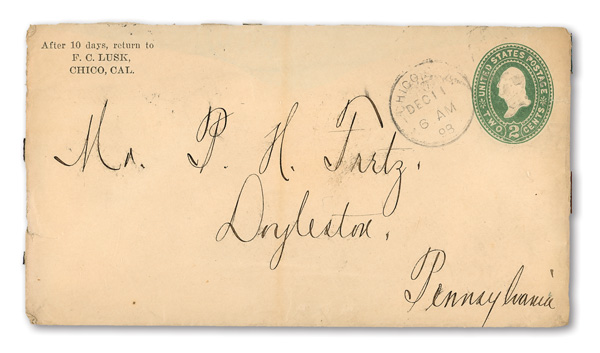 After 10 days, return to
F. C. LUSK,
CHICO, CAL.
CHICO
DEC 11
6 AM
93
UNITED STATES POSTAGE
TWO 2 CENTS
Mr. P. H. Fretz.
Doyleston.
Pennsylvania